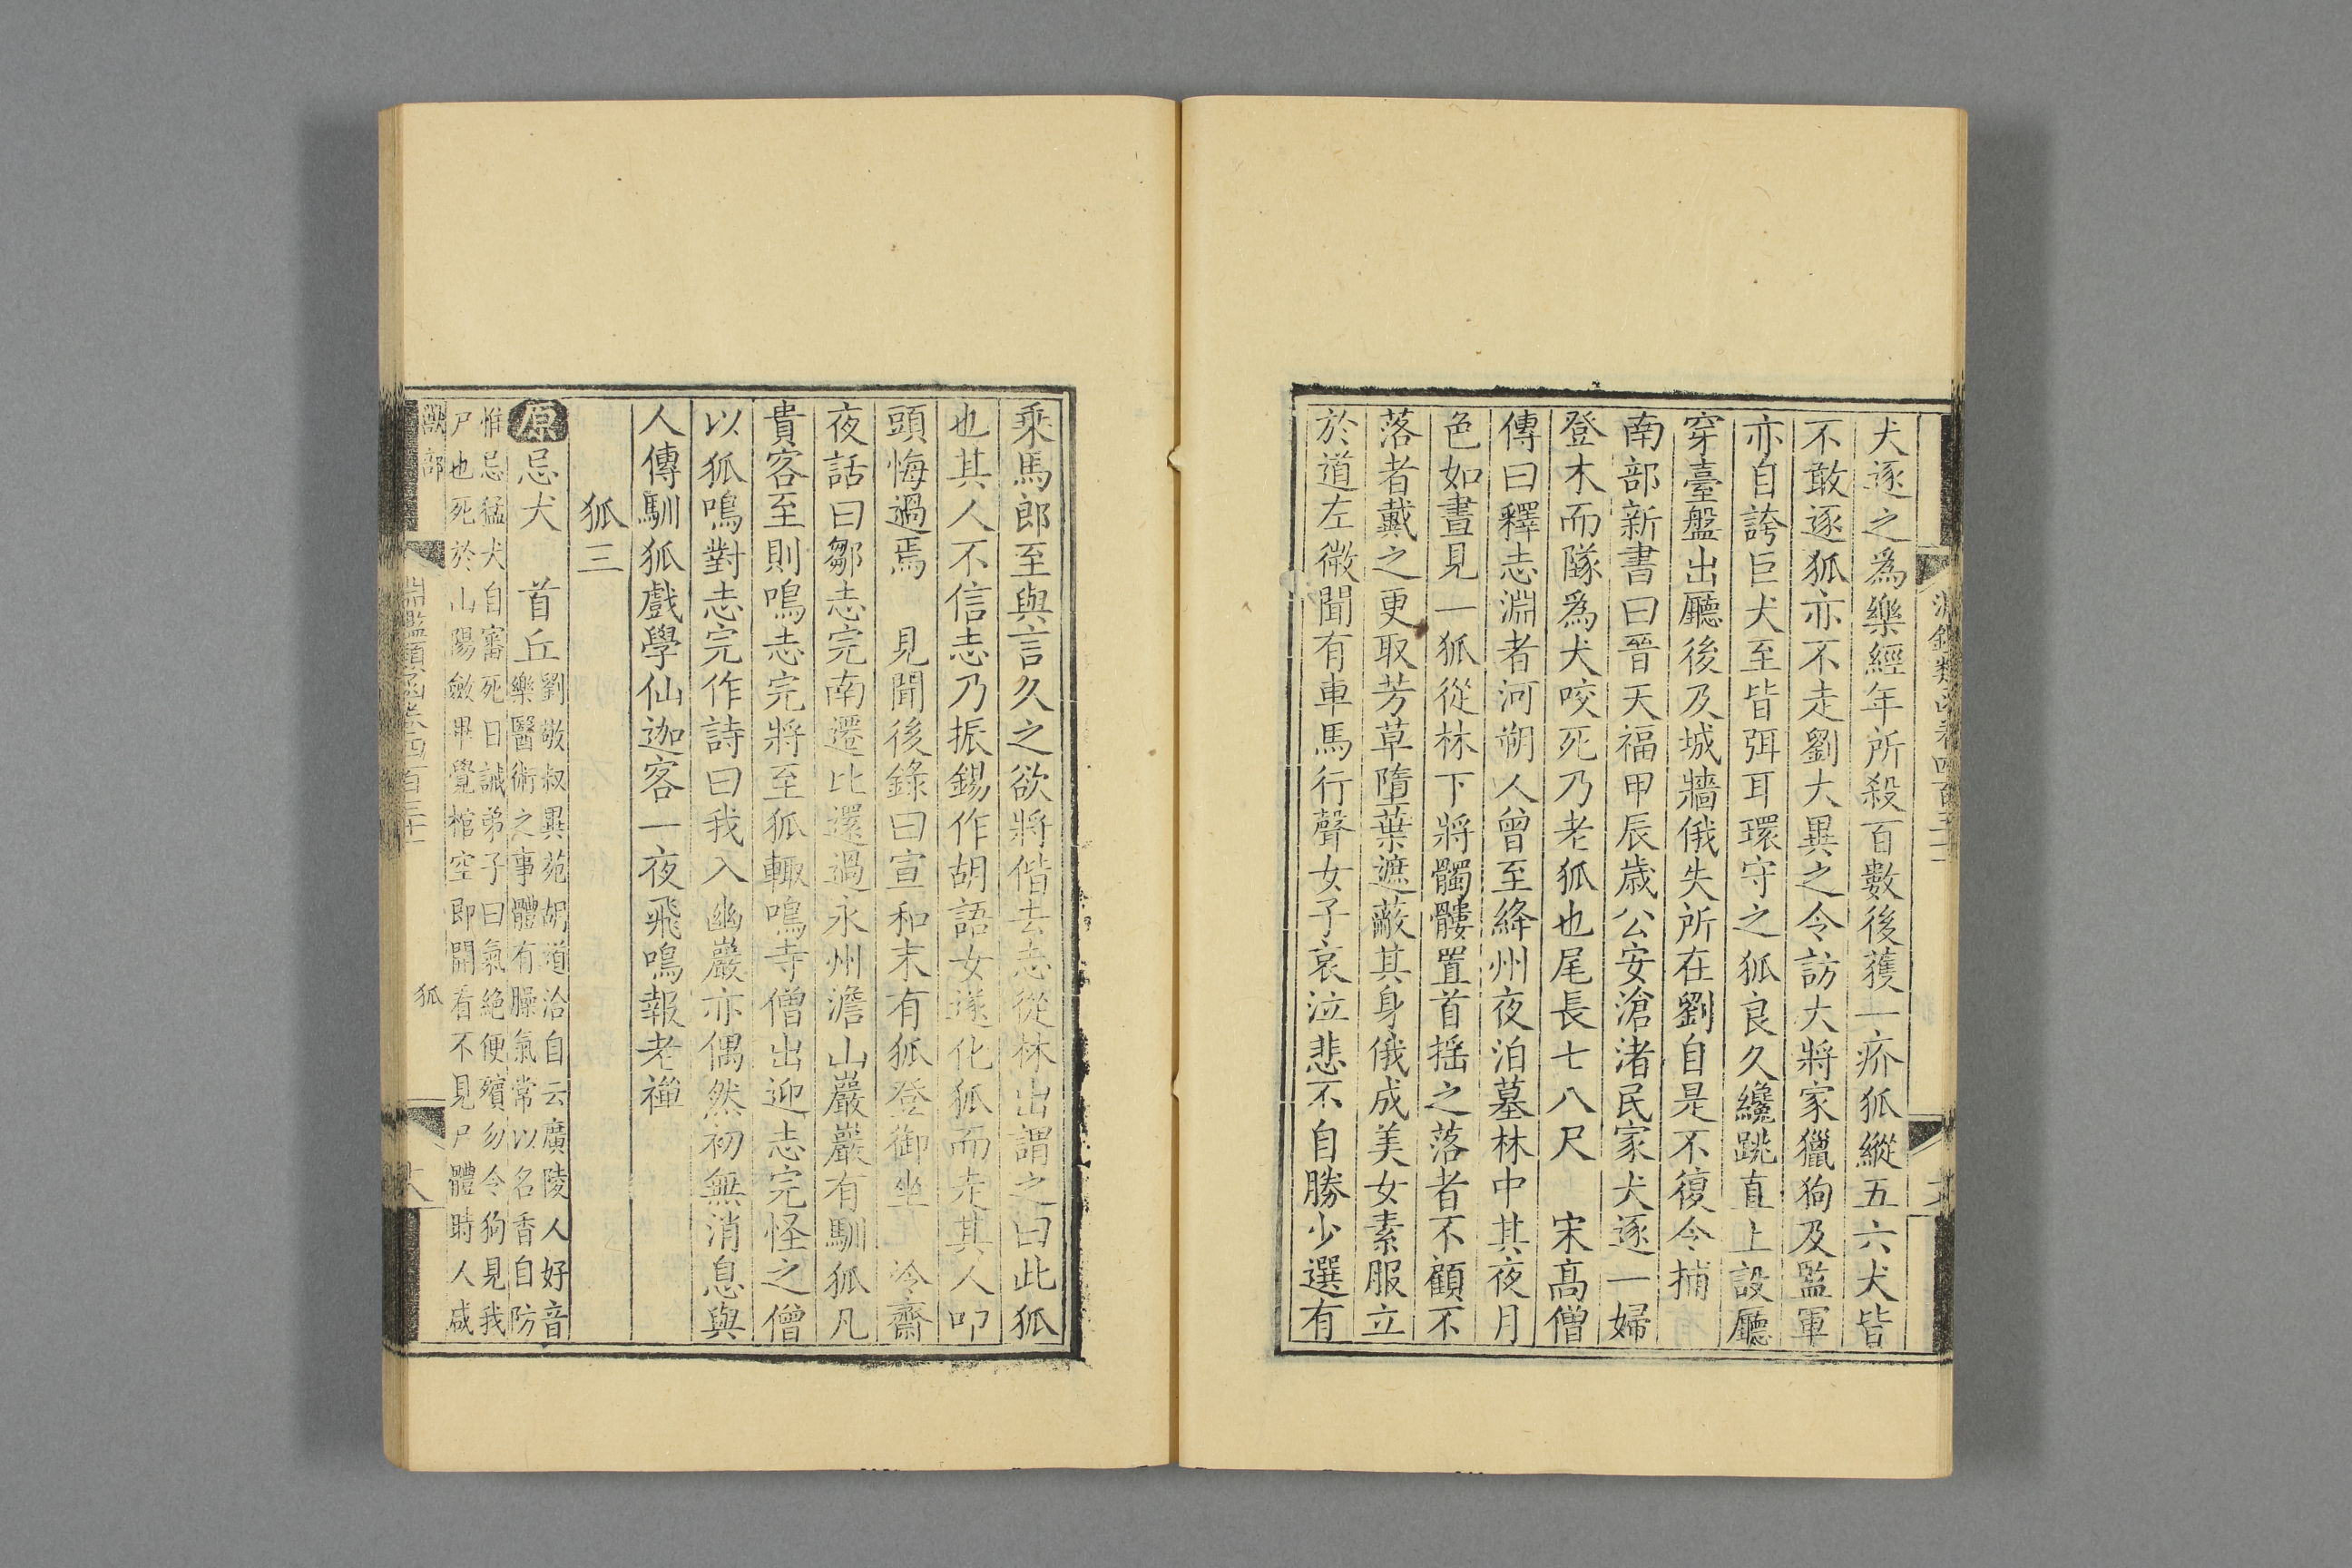 犬逐之爲樂經年所殺百數後獲一疥狐縱五六犬皆
不敢逐狐亦不走劉大異之令訪大將家獵狗及監軍
亦自誇巨犬至皆弭耳環守之狐良久纔跳直上設廳
穿臺盤出廳後及城牆俄失所在劉自是不復令捕
南部新書曰晉天福甲辰歲公安滄渚民家犬逐一婦
登木而墜爲犬咬死乃老狐也尾長七八尺　宋高僧
傳曰釋志淵者河朔人曾至絳州夜泊墓林中其夜月
色如晝見一狐從林下將髑髏置首搖之落者不顧不
落者戴之更取芳草墮葉遮蔽其身俄成美女素服立
於道左微聞有車馬行聲女子哀泣悲不自勝少選有
乘馬郎至與言久之欲將偕去志從林出謂之曰此狐
也其人不信志乃振錫作胡語女遂化狐而走其人叩
頭悔過焉　見聞後錄曰宣和末有狐登御坐　冷齋
夜話曰鄒志完南遷比還過永州澹山巖巖有馴狐凡
貴客至則鳴志完將至狐輙鳴寺僧出迎志完怪之僧
以狐鳴對志完作詩曰我入幽巖亦偶然初無消息與
人傳馴狐戲學仙迦客一夜飛鳴報老禪
狐三
原忌犬　首丘
劉敬叔異苑胡道洽自云廣陵人好音
樂醫術之事體有臊氣常以名香自防
惟忌猛犬自審死日誡弟子曰氣絕便殯勿令狗見我
尸也死於山陽斂畢覺棺空即開看不見尸體時人咸
獸部
狐
淵鑑類函卷四百三十一